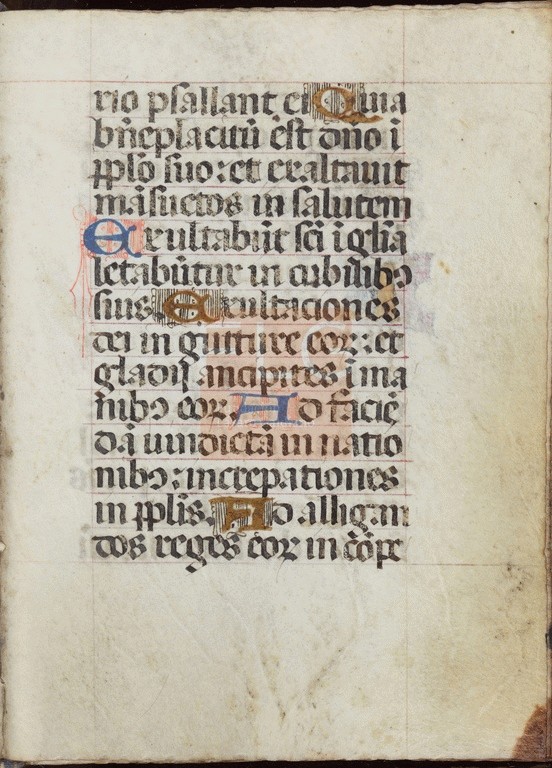 rio psallant ei Quia
bn̄eplacitū est dn̄o ī
ꝓplō suo: et exaltauit
māsuetos in salutem
Exultabūt sc̄i ī gl̄ia
letabūtur in cubilibꝰ
suis. Exultaciones
dei in gutture eoꝝ: et
gladij ancipites ī ma
nibꝰ eoꝝ. Ad faciē
dā uindictā in natio
nibꝰ: increpationes
in ꝓplīs. Ad alligan
dos reges eoꝝ in cōpe